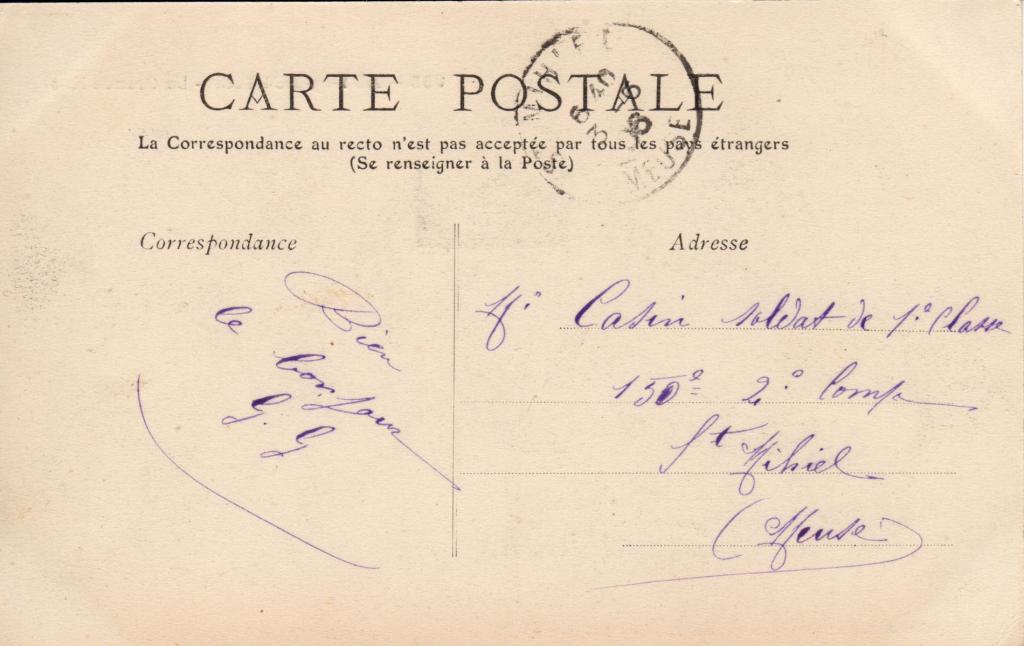 CARTE POSTALE
La Correspondance au recto n'est pas acceptée par tous les pays étrangers
(Se renseigner à la Poste)
MIHIEL
MEUSE
Correspondance
Bien
le
bonjour
G. G
Adresse
Mr Casin soldat de 1e Classe
150e 2e Comp
St Mihiel
(Meuse)